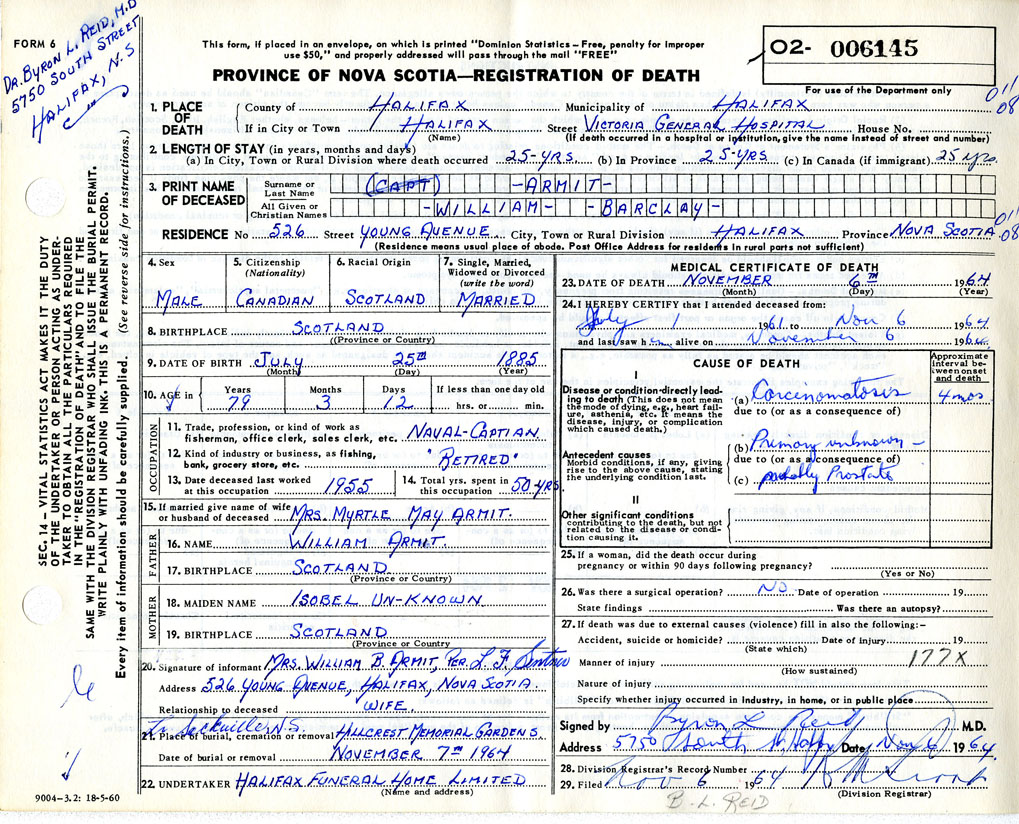 FORM 6
DR. BYRON L. REID, M.D
5750 SOUTH STREET
HALIFAX, N.S
This form, if placed in an envelope, on which is printed "Dominion Statistics – Free, penalty for improper
use $50," and properly addressed will pass through the mail "FREE"
PROVINCE OF NOVA SCOTIA—REGISTRATION OF DEATH
02- 006145
For use of the Department only
1. PLACE OF DEATH
County of HALIFAX Municipality of HALIFAX
If in City or Town HALIFAX Street VICTORIA GENERAL HOSPITAL House No.
(Name) (If death occurred in a hospital or institution, give the name instead of street and number)
011
08
2. LENGTH OF STAY (in years, months and days)
(a) In City, Town or Rural Division where death occurred 25-YRS (b) In Province 25-YRS (c) In Canada (if immigrant) 25 yrs
3. PRINT NAME OF DECEASED
Surname or Last Name (CAPT) -ARMIT-
All Given or Christian Names -WILLIAM- -BARCLAY-
RESIDENCE No 526 Street YOUNG AVENUE City, Town or Rural Division HALIFAX Province NOVA SCOTIA
(Residence means usual place of abode. Post Office Address for residents in rural parts not sufficient)
011
08
4. Sex MALE
5. Citizenship (Nationality) CANADIAN
6. Racial Origin SCOTLAND
7. Single, Married, Widowed or Divorced (write the word) MARRIED
8. BIRTHPLACE SCOTLAND
(Province or Country)
9. DATE OF BIRTH JULY 25TH 1885
(Month) (Day) (Year)
10. AGE in Years 79 Months 3 Days 12 If less than one day old hrs. or min.
OCCUPATION
11. Trade, profession, or kind of work as fisherman, office clerk, sales clerk, etc. NAVAL-CAPTIAN
12. Kind of industry or business, as fishing, bank, grocery store, etc. "RETIRED"
13. Date deceased last worked at this occupation 1955
14. Total yrs. spent in this occupation 50 YRS
15. If married give name of wife or husband of deceased MRS. MYRTLE MAY ARMIT.
FATHER
16. NAME WILLIAM ARMIT.
17. BIRTHPLACE SCOTLAND
(Province or Country)
MOTHER
18. MAIDEN NAME ISOBEL UN-KNOWN
19. BIRTHPLACE SCOTLAND
(Province or Country)
20. Signature of informant MRS. WILLIAM B. ARMIT, PER. L. F.
Address 526 YOUNG AVENUE, HALIFAX, NOVA SCOTIA
Relationship to deceased WIFE.
Sackville N.S.
21. Place of burial, cremation or removal HILLCREST MEMORIAL GARDENS.
Date of burial or removal NOVEMBER 7TH 1964
22. UNDERTAKER HALIFAX FUNERAL HOME LIMITED
(Name and address)
9004-3.2: 18-5-60
SEC. 14 – VITAL STATISTICS ACT MAKES IT THE DUTY
OF THE UNDERTAKER OR PERSON ACTING AS UNDER-
TAKER TO OBTAIN ALL THE PARTICULARS REQUIRED
IN THE "REGISTRATION OF DEATH" AND TO FILE THE
SAME WITH THE DIVISION REGISTRAR WHO SHALL ISSUE THE BURIAL PERMIT.
WRITE PLAINLY WITH UNFADING INK. THIS IS A PERMANENT RECORD.
Every item of information should be carefully supplied. (See reverse side for instructions.)
MEDICAL CERTIFICATE OF DEATH
23. DATE OF DEATH NOVEMBER 6TH 1964
(Month) (Day) (Year)
24. I HEREBY CERTIFY that I attended deceased from:
July 1 1961 to Nov 6 1964
and last saw him alive on November 6 1964
CAUSE OF DEATH
Approximate interval between onset and death
I
Disease or condition directly leading to death (This does not mean the mode of dying, e.g., heart failure, asthenia, etc. It means the disease, injury, or complication which caused death.)
(a) Carcinomatosis 4 mos
due to (or as a consequence of)
Antecedent causes
Morbid conditions, if any, giving rise to the above cause, stating the underlying condition last.
(b) Primary unknown –
due to (or as a consequence of)
(c) probably Prostate
II
Other significant conditions
contributing to the death, but not related to the disease or condition causing it.
25. If a woman, did the death occur during
pregnancy or within 90 days following pregnancy?
(Yes or No)
26. Was there a surgical operation? NO Date of operation 19
State findings Was there an autopsy?
27. If death was due to external causes (violence) fill in also the following:–
Accident, suicide or homicide? Date of injury 19
(State which)
Manner of injury 177X
(How sustained)
Nature of injury
Specify whether injury occurred in industry, in home, or in public place
Signed by Byron L Reid M.D.
Address 5750 South St Hfx Date Nov 6 1964
28. Division Registrar's Record Number
29. Filed Nov 6 1964
(Division Registrar)
B. L. REID